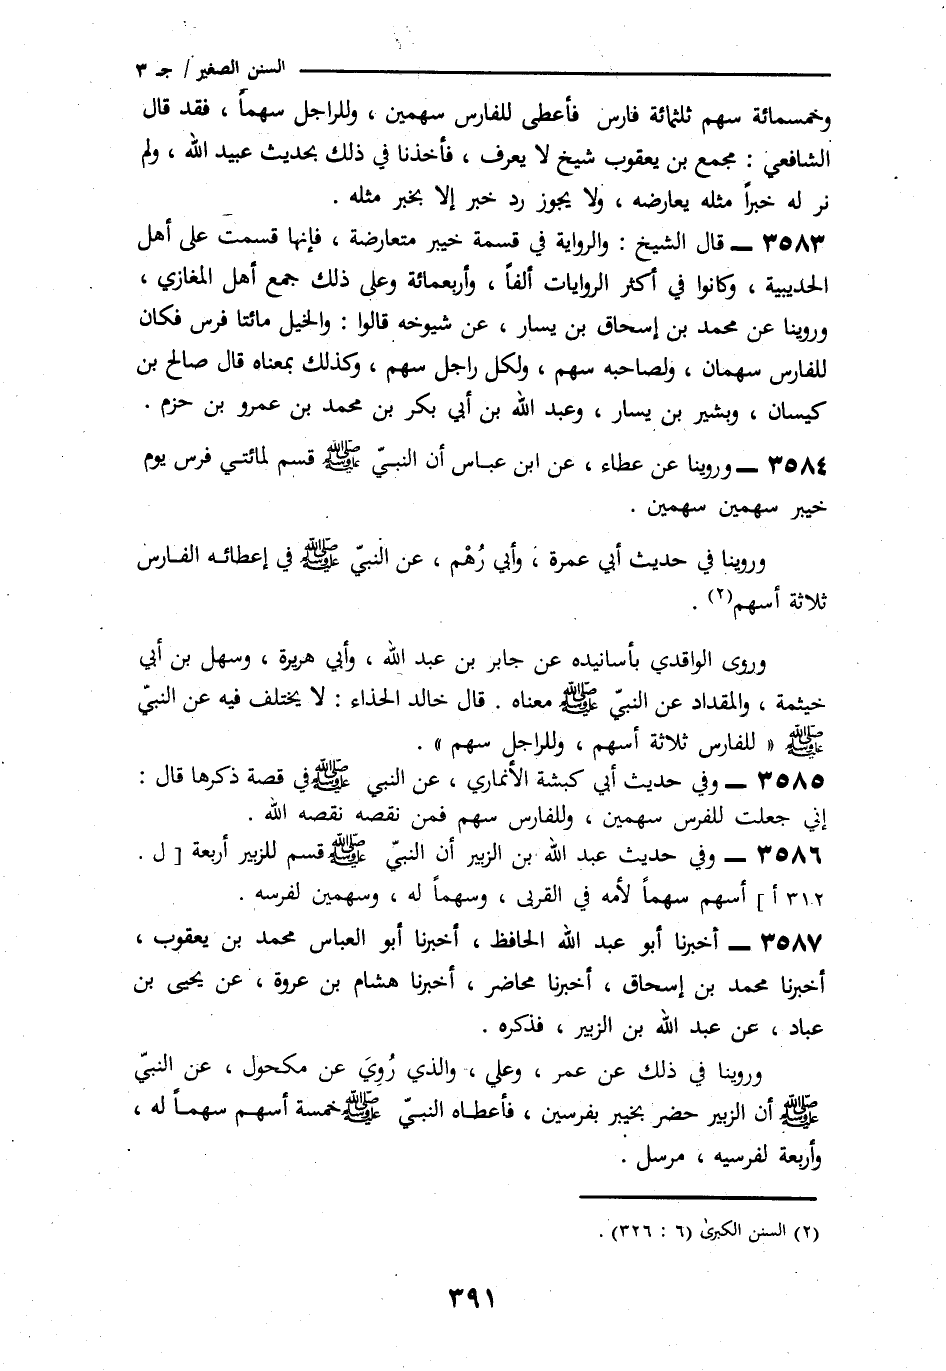 السنن الصغير / جـ ٣
وخمسمائة سهم ثلثمائة فارس فأعطى للفارس سهمين ، وللراجل سهماً ، فقد قال
الشافعي : مجمع بن يعقوب شيخ لا يعرف ، فأخذنا في ذلك بحديث عبيد الله ، ولم
نر له خبراً مثله يعارضه ، ولا يجوز رد خبر إلا بخبر مثله .
٣٥٨٣ ــ قال الشيخ : والرواية في قسمة خيبر متعارضة ، فإنها قسمت على أهل
الحديبية ، وكانوا في أكثر الروايات ألفاً ، وأربعمائة وعلى ذلك جمع أهل المغازي ،
وروينا عن محمد بن إسحاق بن يسار ، عن شيوخه قالوا : والخيل مائتا فرس فكان
للفارس سهمان ، ولصاحبه سهم ، ولكل راجل سهم ، وكذلك بمعناه قال صالح بن
كيسان ، وبشير بن يسار ، وعبد الله بن أبي بكر بن محمد بن عمرو بن حزم .
٣٥٨٤ ــ وروينا عن عطاء ، عن ابن عباس أن النبيّ ﷺ قسم لمائتي فرس يوم
خيبر سهمين سهمين .
وروينا في حديث أبي عمرة ، وأبي رُهْم ، عن النبيّ ﷺ في إعطائه الفارس
ثلاثة أسهم(٢) .
وروى الواقدي بأسانيده عن جابر بن عبد الله ، وأبي هريرة ، وسهل بن أبي
خيثمة ، والمقداد عن النبيّ ﷺ معناه . قال خالد الحذاء : لا يختلف فيه عن النبيّ
ﷺ « للفارس ثلاثة أسهم ، وللراجل سهم » .
٣٥٨٥ ــ وفي حديث أبي كبشة الأنماري ، عن النبي ﷺ في قصة ذكرها قال :
إني جعلت للفرس سهمين ، وللفارس سهم فمن نقصه نقصه الله .
٣٥٨٦ ــ وفي حديث عبد الله بن الزبير أن النبيّ ﷺ قسم للزبير أربعة [ ل .
٣١٢ أ ] أسهم سهماً لأمه في القربى ، وسهماً له ، وسهمين لفرسه .
٣٥٨٧ ــ أخبرنا أبو عبد الله الحافظ ، أخبرنا أبو العباس محمد بن يعقوب ،
أخبرنا محمد بن إسحاق ، أخبرنا محاضر ، أخبرنا هشام بن عروة ، عن يحيى بن
عباد ، عن عبد الله بن الزبير ، فذكره .
وروينا في ذلك عن عمر ، وعلي ، والذي رُوِيَ عن مكحول ، عن النبيّ
ﷺ أن الزبير حضر بخيبر بفرسين ، فأعطاه النبيّ ﷺ خمسة أسهم سهماً له ،
وأربعة لفرسيه ، مرسل .
(٢) السنن الكبرىٰ (٦ : ٣٢٦) .
٣٩١